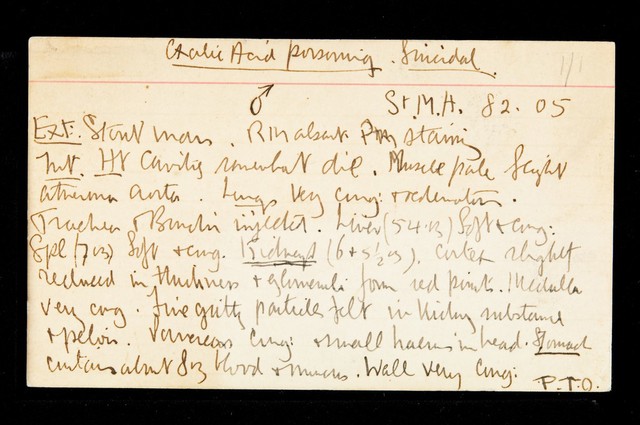 Oxalic Acid poisoning. Suicidal.
1/1
♂
St. M. H. 82. 05
Ext. Stout man. R.M absent P.M staining
Int. Ht Cavities somewhat dil. Muscle pale Slight
atheroma aorta. Lungs Very cong: + oedematous.
Trachea + Bronchi injected. Liver (54 oz) Soft + cong:
Spl (7 oz) Soft + cong. Kidneys (6 + 5½ oz). cortex slightly
reduced in thickness + glomeruli form red points. Medulla
very cong. Fine gritty particles felt in kidney substance
+ pelvis. Pancreas Cong: + small haems in head. Stomach
contains about 8 oz blood + mucus. Wall very cong:
P.T.O.